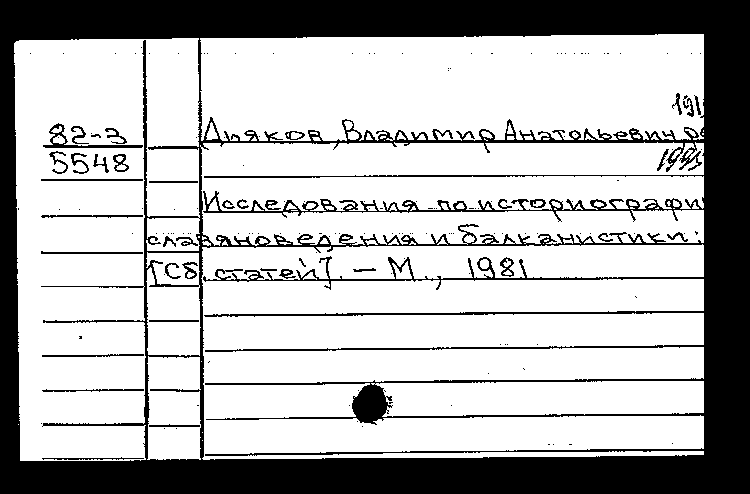 191
82-3 Дьяков, Владимир Анатольевич, ре
5548 1995
Исследования по историографи
славяноведения и балканистики:
[Сб. статей]. – М., 1981